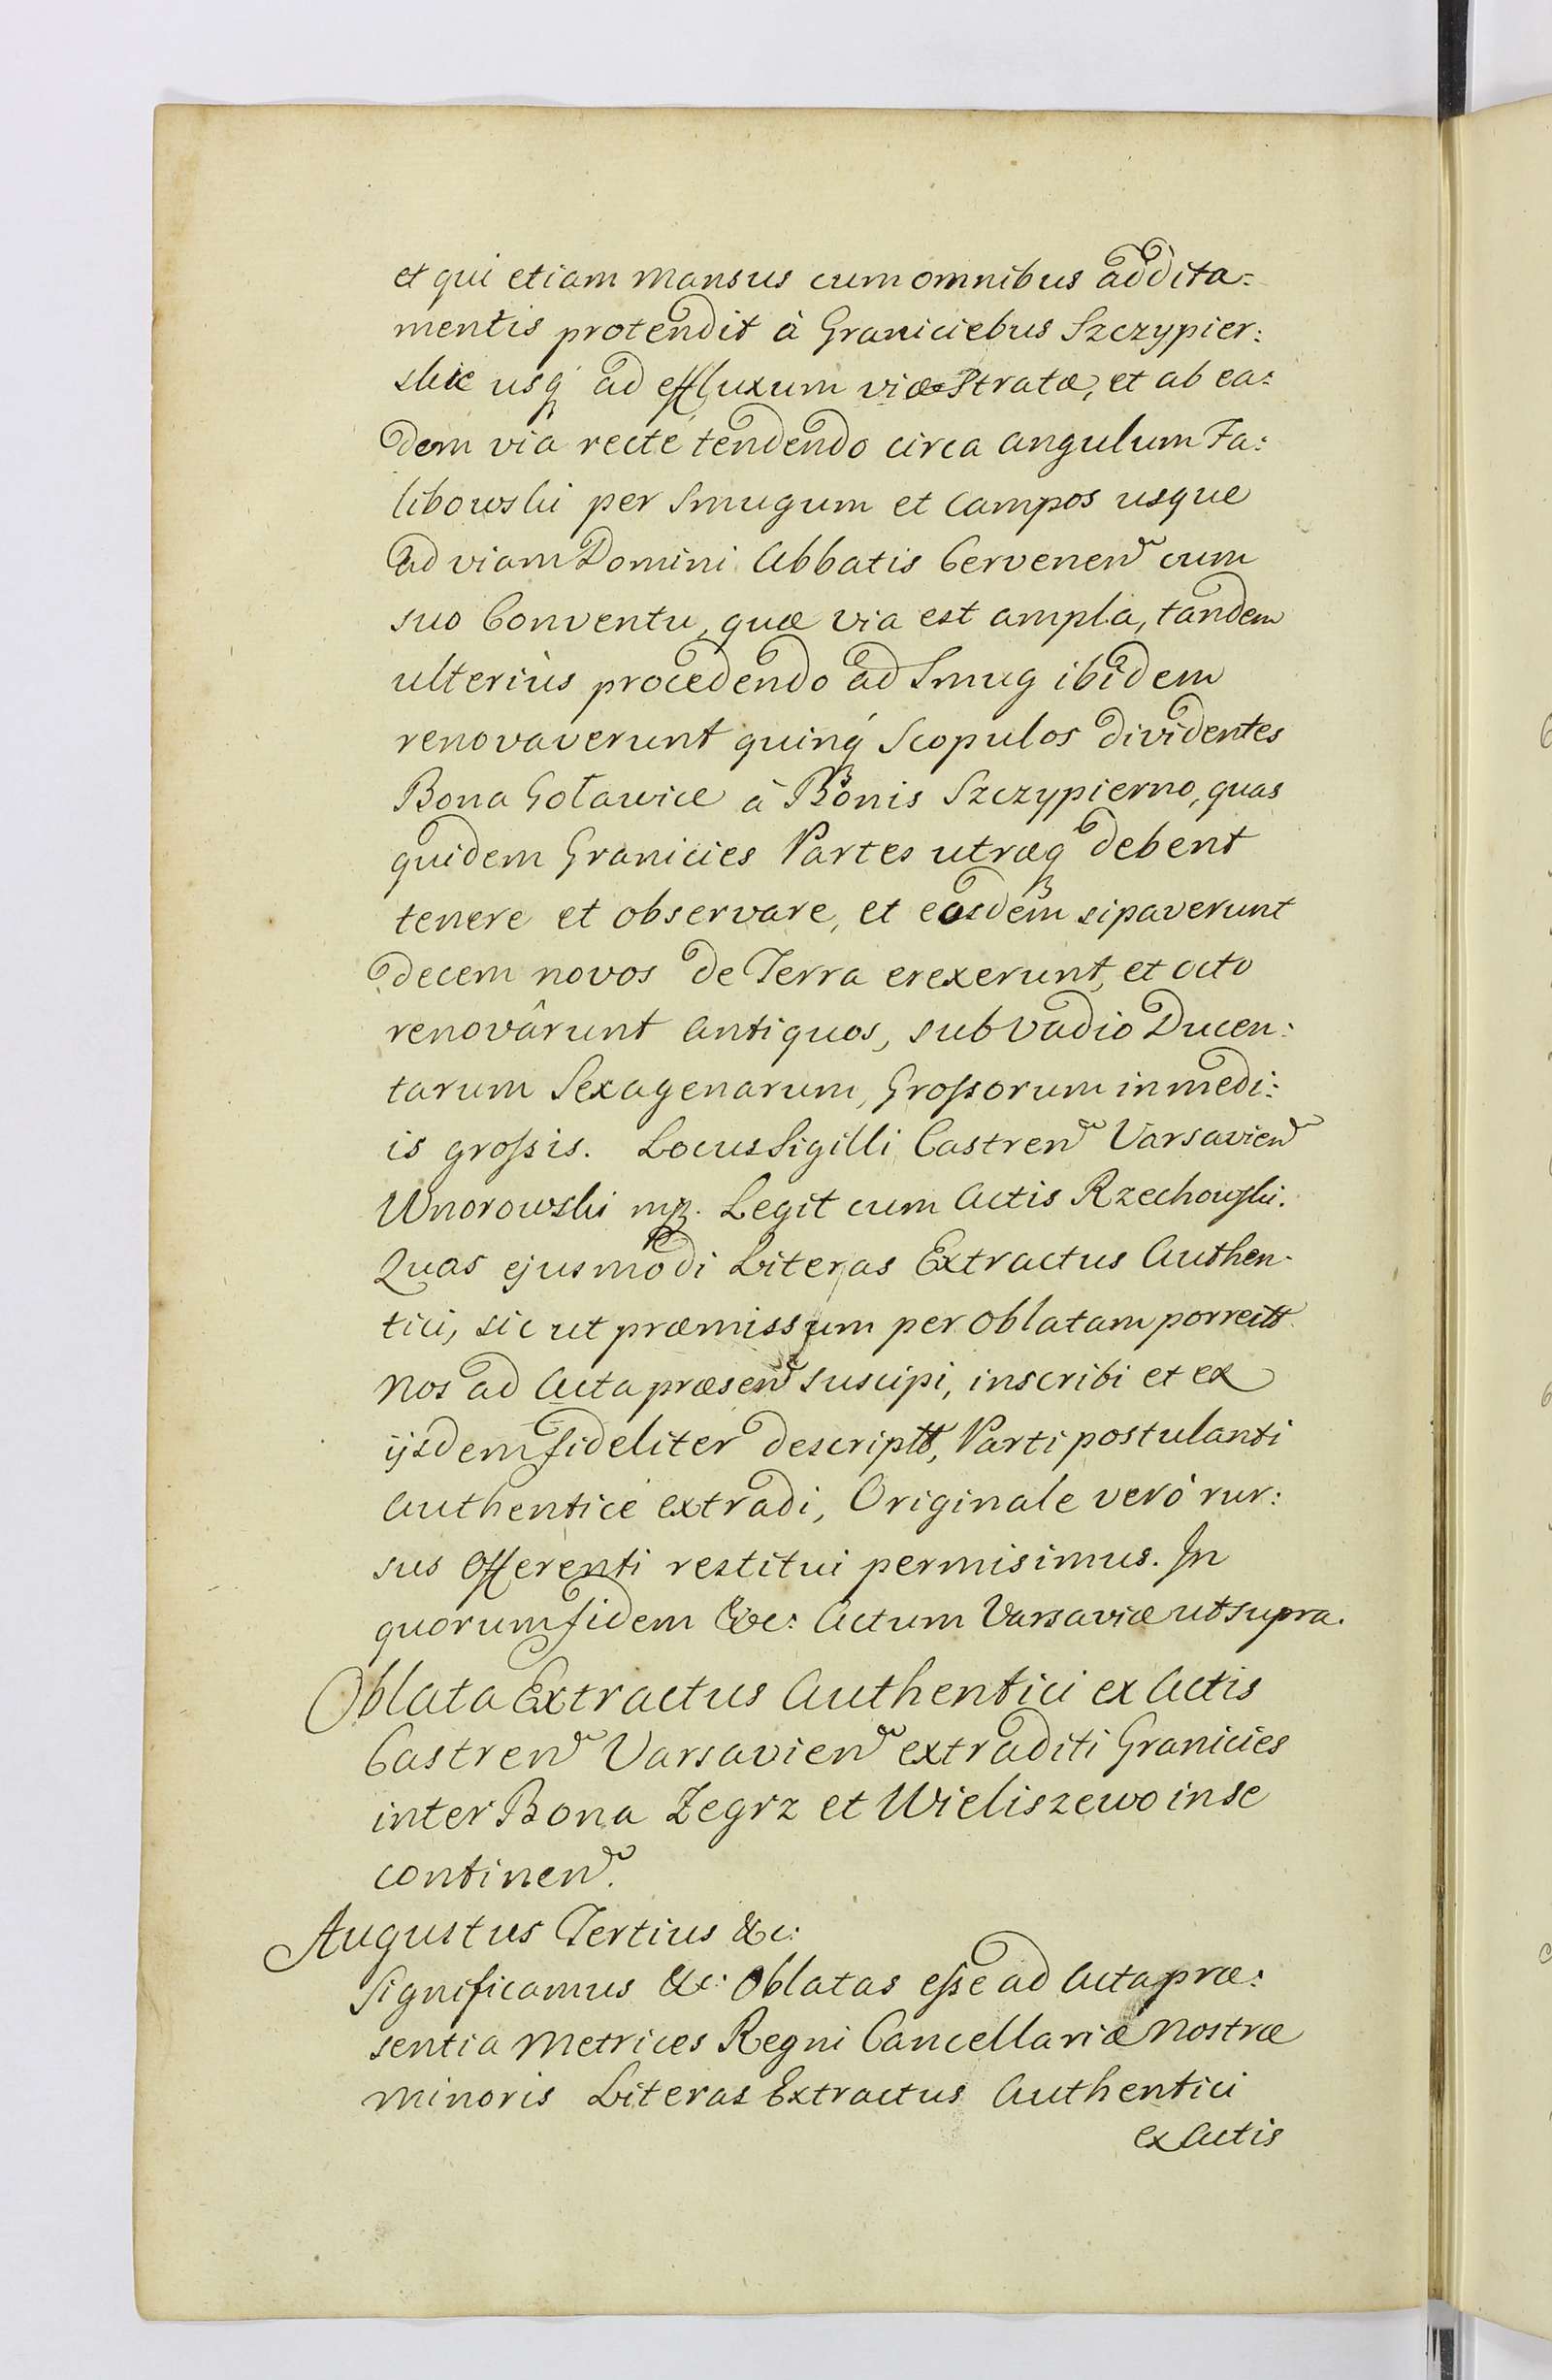 et qui etiam Mansus cum omnibus addita:
mentis protendit à Graniciebus Szczypier:
skie usq́ ad effluxum viæ Stratæ, et ab ea:
dem via recté tendendo circa angulum Fa:
libowski per Smugum et Campos usque
ad viam Domini Abbatis Cervenen̄ cum
suo Conventu, quæ via est ampla, tandem
ulteriùs procedendo ad Smug ibidem
renovaverunt quinq́ Scopulos dividentes
Bona Goławice à Bonis Szczypierno, quas
quidem Granicies Partes utræq́ debent
tenere et observare, et easdem sipaverunt
decem novos de Terra erexerunt, et octo
renovârunt antiquos, sub Vadio Ducen:
tarum Sexagenarum, Grossorum in medi:
is grossis. Locus Sigilli Castren̄ Varsavien̄
Wnorowski mp. Legit cum Actis Rzechowski.
Quas ejusmodi Literas Extractus Authen-
tici, sic ut præmissum per Oblatam porrectt.
Nos ad Acta præsen̄ suscipi, inscribi et ex
ijsdem fideliter descriptt, Parti postulanti
authenticé extradi, Originale veró rur:
sus Offerenti restitui permisimus. In
quorum fidem &c: Actum Varsaviæ ut supra.
Oblata Extractus Authentici ex Actis
Castren̄ Varsavien̄ extraditi Granicies
inter Bona Zegrz et Wieliszewo in se
continen̄.
Augustus Tertius &c:
Significamus &c: Oblatas esse ad Acta præ:
sentia Metrices Regni Cancellariæ Nostræ
Minoris Literas Extractus Authentici
ex Actis